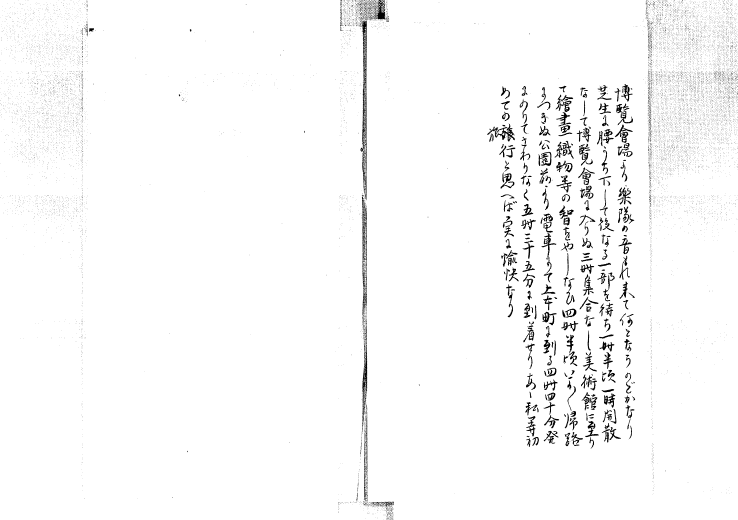 博覧會場より樂隊の音もれ来て何となうのどかなり
芝生に腰うち下して後なる一部を待ち一時半頃一時間散
なして博覧會場に入りぬ三時集合なし美術館に至り
て繪畫織物等の智をやしなひ四時半頃いよ〳〵帰路
につきぬ公園前より電車にて上本町に到る四時四十分発
にのりてさわりなく五時三十五分に到着せりあゝ私等初
めての旅行と思へば実に愉快なり
旅